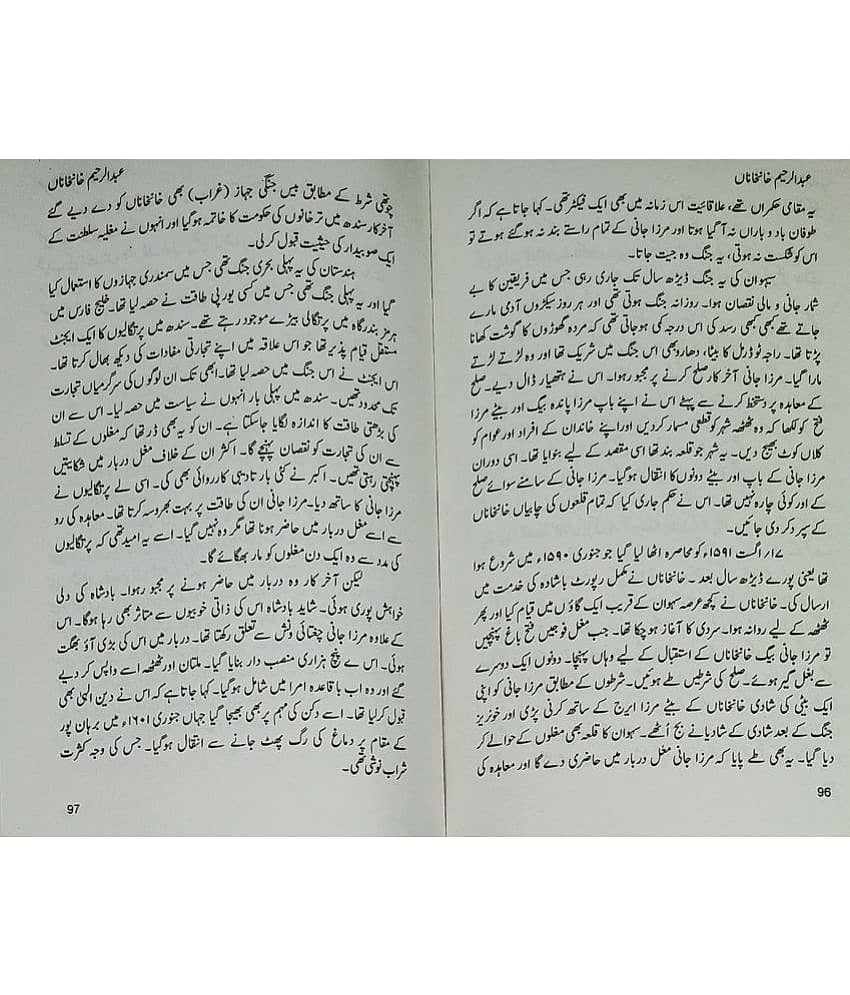 عبدالرحیم خانخاناں
یہ مقامی حکمراں تھے، علاقائیت اس زمانہ میں بھی ایک فیکٹر تھی۔ کہا جاتا ہے کہ اگر
طوفان باد و باراں نہ آ گیا ہوتا اور مرزا جانی کے تمام راستے بند نہ ہو گئے ہوتے تو
اس کو شکست نہ ہوتی، یہ جنگ وہ جیت جاتا۔
سیہوان کی یہ جنگ ڈیڑھ سال تک جاری رہی جس میں فریقین کا بے
شمار جانی و مالی نقصان ہوا۔ روزانہ جنگ ہوتی تھی اور ہر روز سیکڑوں آدمی مارے
جاتے تھے کبھی کبھی رسد کی اس درجہ کمی ہو جاتی تھی کہ مردہ گھوڑوں کا گوشت کھانا
پڑتا تھا۔ راجہ ٹوڈرمل کا بیٹا، دھارو بھی اس جنگ میں شریک تھا اور وہ لڑتے لڑتے
مارا گیا۔ مرزا جانی آخر کار صلح کرنے پر مجبور ہوا۔ اس نے ہتھیار ڈال دیے۔ صلح
کے معاہدہ پر دستخط کرنے سے پہلے اس نے اپنے باپ مرزا پائندہ بیگ اور بیٹے مرزا
فتح کو لکھا کہ وہ ٹھٹھہ شہر کو قطعی مسمار کردیں اور اپنے خاندان کے افراد اور عوام کو
کلاں کوٹ بھیج دیں۔ یہ شہر جو قلعہ بند تھا اسی مقصد کے لیے بنوایا تھا۔ اسی دوران
مرزا جانی کے باپ اور بیٹے دونوں کا انتقال ہوگیا۔ مرزا جانی کے سامنے سوائے صلح
کے اور کوئی چارہ نہیں تھا۔ اس نے حکم جاری کیا کہ تمام قلعوں کی چابیاں خانخاناں
کے سپرد کردی جائیں۔
۱۷/ اگست ۱۵۹۱ء کو محاصرہ اٹھا لیا گیا جو جنوری ۱۵۹۰ء میں شروع ہوا
تھا یعنی پورے ڈیڑھ سال بعد۔ خانخاناں نے مکمل رپورٹ باشادہ کی خدمت میں
ارسال کی۔ خانخاناں نے کچھ عرصہ سہوان کے قریب ایک گاؤں میں قیام کیا اور پھر
ٹھٹھہ کے لیے روانہ ہوا۔ سردی کا آغاز ہوچکا تھا۔ جب مغل فوجیں فتح باغ پہنچیں
تو مرزا جانی بیگ خانخاناں کے استقبال کے لیے وہاں پہنچا۔ دونوں ایک دوسرے
سے بغل گیر ہوئے۔ صلح کی شرطیں طے ہوئیں۔ شرطوں کے مطابق مرزا جانی کو اپنی
ایک بیٹی کی شادی خانخاناں کے بیٹے مرزا ایرج کے ساتھ کرنی پڑی اور خونریز
جنگ کے بعد شادی کے شادیانے بج اُٹھے۔ سہوان کا قلعہ بھی مغلوں کے حوالے کر
دیا گیا۔ یہ بھی طے پایا کہ مرزا جانی مغل دربار میں حاضری دے گا اور معاہدہ کی
96
عبدالرحیم خانخاناں
چوتھی شرط کے مطابق بیس جنگی جہاز (غراب) بھی خانخاناں کو دے دیے گئے
آخر کار سندھ میں ترخانوں کی حکومت کا خاتمہ ہوگیا اور انہوں نے مغلیہ سلطنت کے
ایک صوبیدار کی حیثیت قبول کرلی۔
ہندستان کی یہ پہلی بحری جنگ تھی جس میں سمندری جہازوں کا استعمال کیا
گیا اور یہ پہلی جنگ تھی جس میں کسی یورپی طاقت نے حصہ لیا تھا۔ خلیج فارس میں
ہرمز بندرگاہ میں پرتگالی بیڑے موجود رہتے تھے۔ سندھ میں پرتگالیوں کا ایک ایجنٹ
مستقل قیام پذیر تھا جو اس علاقہ میں اپنے تجارتی مفادات کی دیکھ بھال کرتا تھا۔
اس ایجنٹ نے اس جنگ میں حصہ لیا تھا۔ ابھی تک ان لوگوں کی سرگرمیاں تجارت
تک محدود تھیں۔ سندھ میں پہلی بار انہوں نے سیاست میں حصہ لیا۔ اس سے ان
کی بڑھتی طاقت کا اندازہ لگایا جاسکتا ہے۔ ان کو یہ بھی ڈر تھا کہ مغلوں کے تسلط
سے ان کی تجارت کو نقصان پہنچے گا۔ اکثر ان کے خلاف مغل دربار میں شکایتیں
پہنچتی رہتی تھیں۔ اکبر نے کئی بار تادیبی کارروائی بھی کی۔ اسی لیے پرتگالیوں نے
مرزا جانی کا ساتھ دیا۔ مرزا جانی ان کی طاقت پر بہت بھروسہ کرتا تھا۔ معاہدہ کی رو
سے اسے مغل دربار میں حاضر ہونا تھا مگر وہ نہیں گیا۔ اسے یہ امید تھی کہ پرتگالیوں
کی مدد سے وہ ایک دن مغلوں کو مار بھگائے گا۔
لیکن آخر کار وہ دربار میں حاضر ہونے پر مجبور ہوا۔ بادشاہ کی دلی
خواہش پوری ہوئی۔ شاید بادشاہ اس کی ذاتی خوبیوں سے متاثر بھی رہا ہوگا۔ اس
کے علاوہ مرزا جانی چغتائی ونش سے تعلق رکھتا تھا۔ دربار میں اس کی بڑی آؤ بھگت
ہوئی۔ اسے پنج ہزاری منصب دار بنایا گیا۔ ملتان اور ٹھٹھہ اسے واپس کر دیے
گئے اور وہ اب باقاعدہ امرا میں شامل ہوگیا۔ کہا جاتا ہے کہ اس نے دین الٰہی بھی
قبول کرلیا تھا۔ اسے دکن کی مہم پر بھی بھیجا گیا جہاں جنوری ۱۶۰۱ء میں برہان پور
کے مقام پر دماغ کی رگ پھٹ جانے سے انتقال ہوگیا۔ جس کی وجہ کثرت
شراب نوشی تھی۔
97